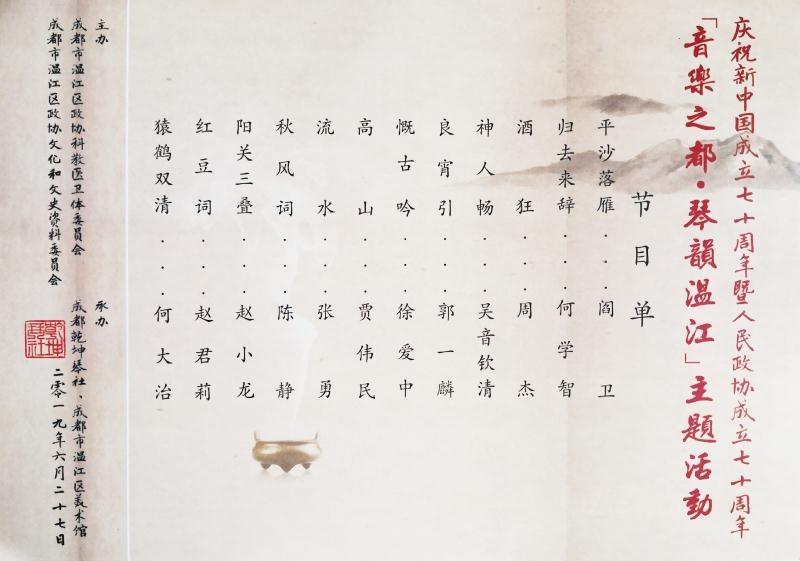 庆祝新中国成立七十周年暨人民政协成立七十周年
「音樂之都·琴韻温江」主题活動
节目单
平沙落雁...阎卫
归去来辞...何学智
酒狂...周杰
神人畅...吴音钦清
良宵引...郭一麟
慨古吟...徐爱中
高山...贾伟民
流水...张勇
秋风词...陈静
阳关三叠...赵小龙
红豆词...赵君莉
猿鹤双清...何大治
主办
成都市温江区政协科教医卫体委员会
成都市温江区政协文化和文史资料委员会
承办
成都乾坤琴社、成都市温江区美术馆
二零一九年六月二十七日
乾坤琴社